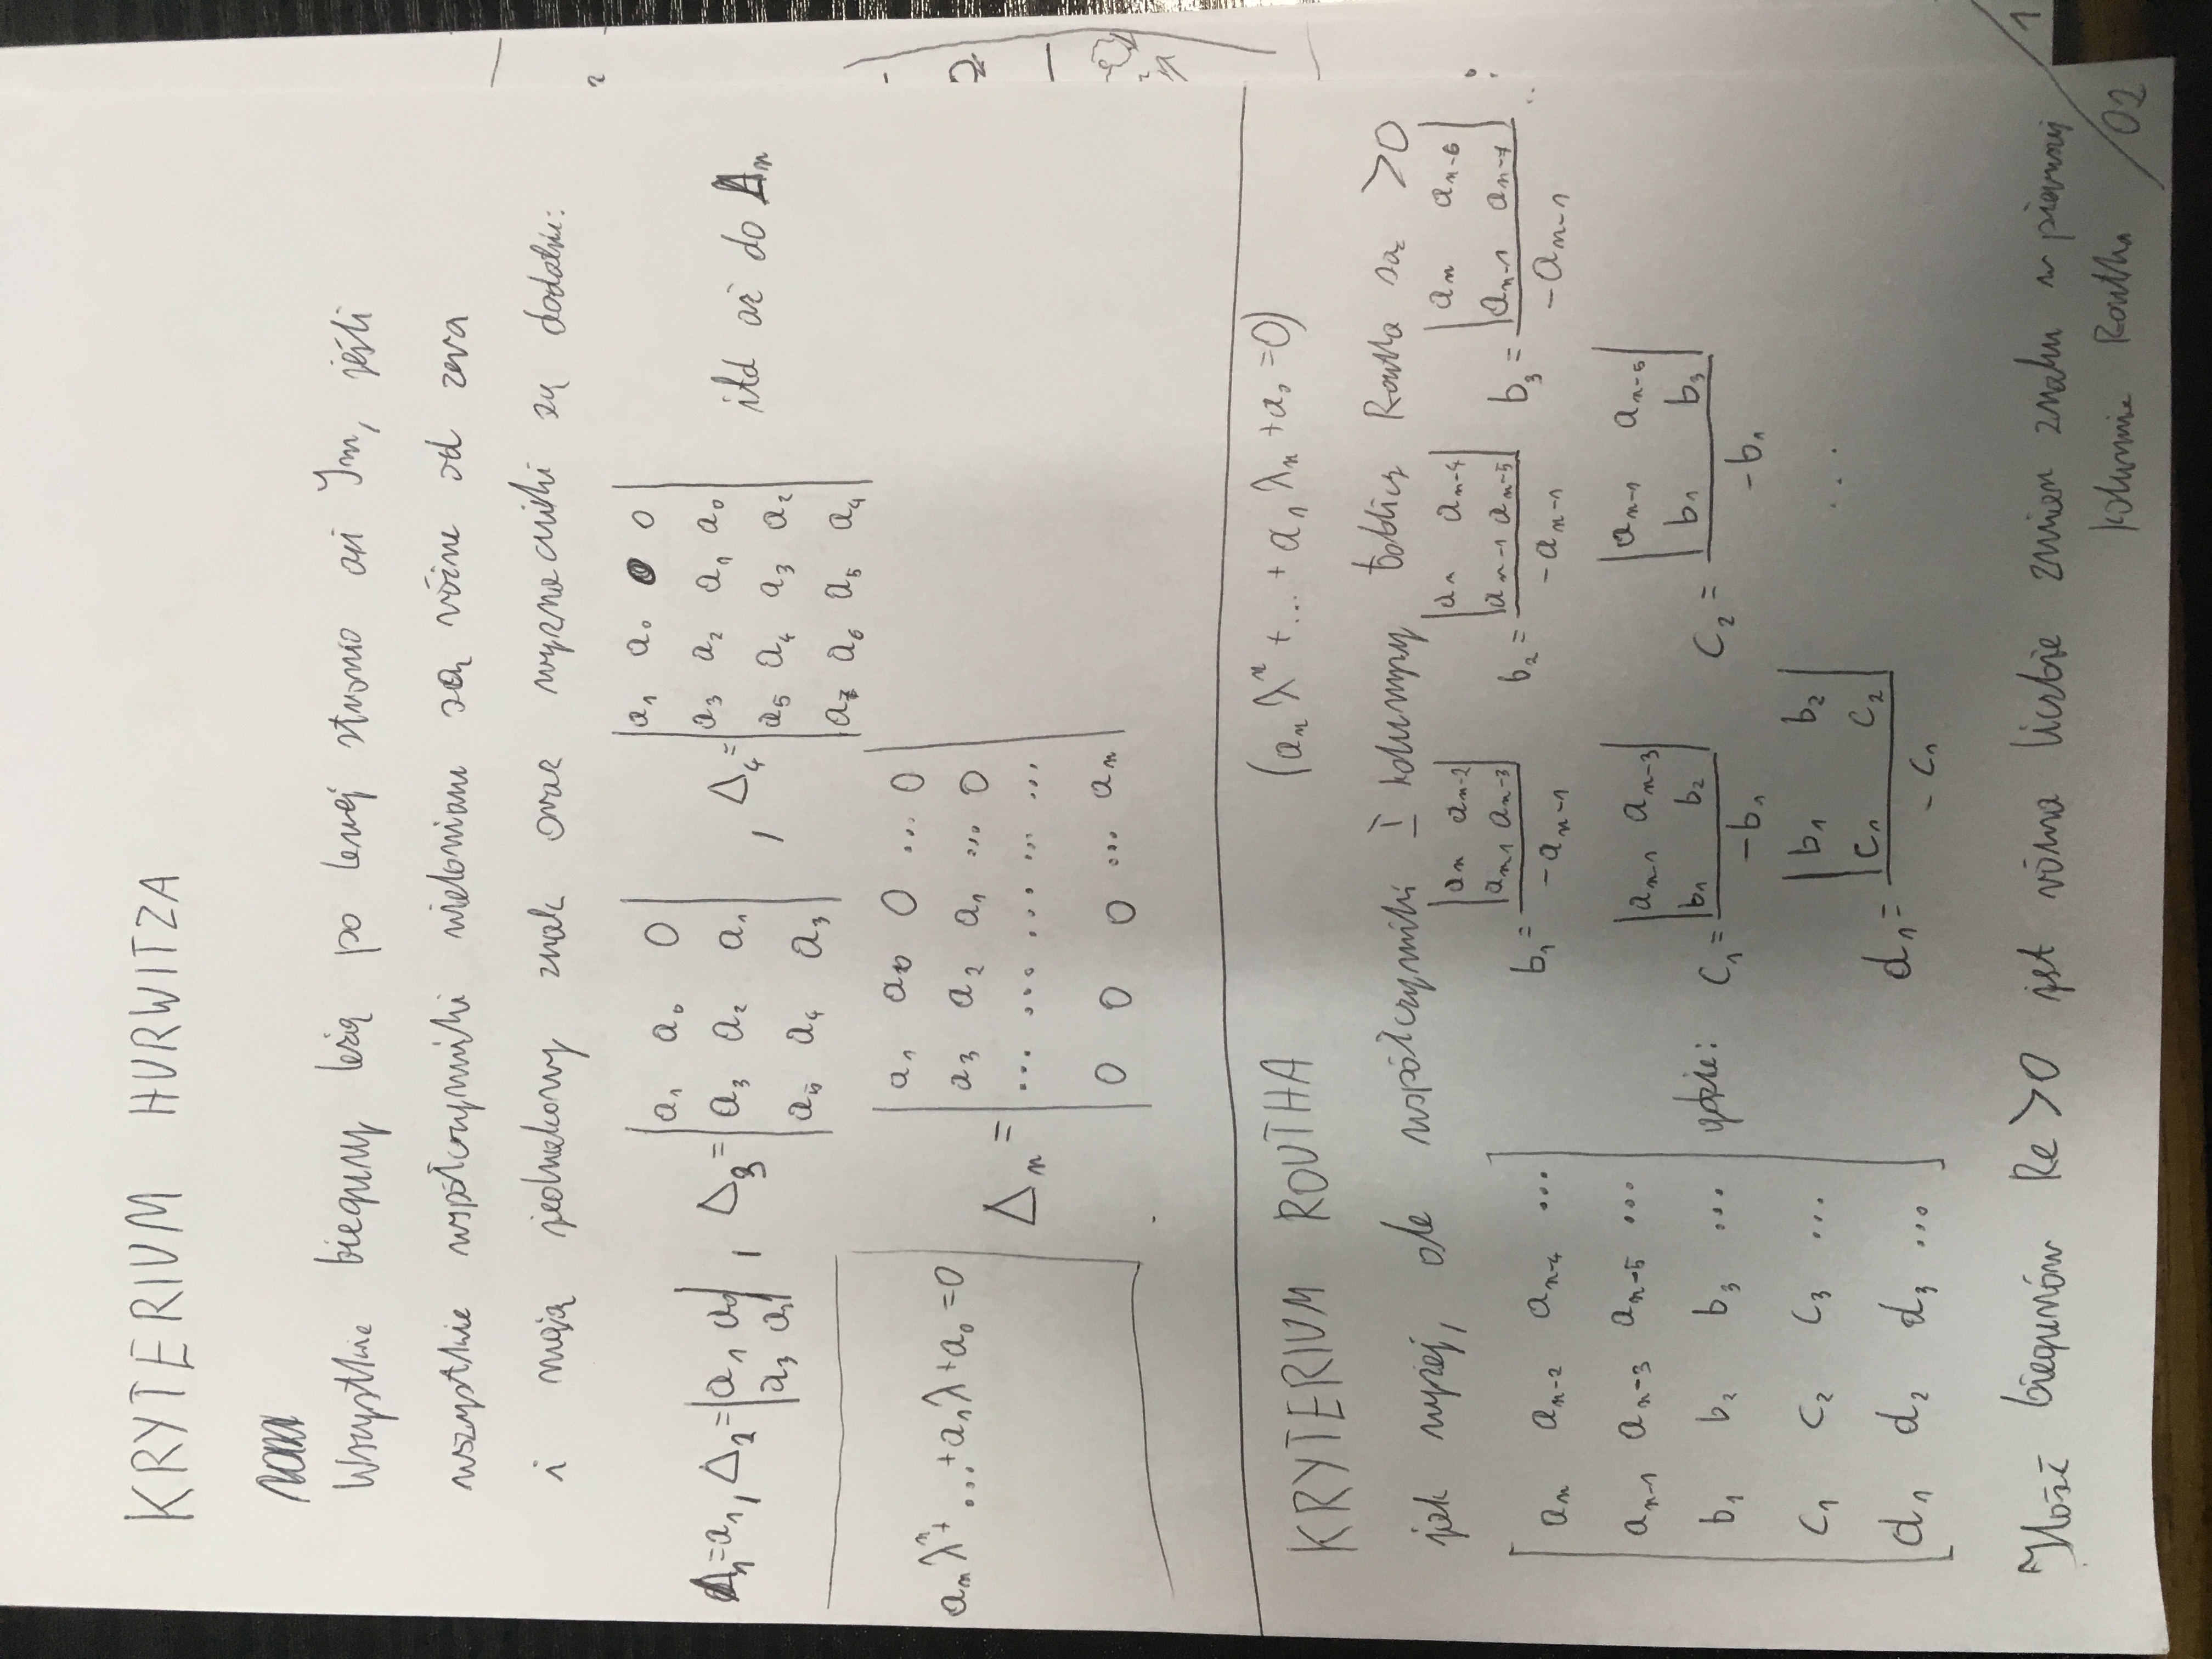 KRYTERIUM HURWITZA
Wszystkie bieguny leżą po lewej stronie osi Im, jeśli
wszystkie współczynniki wielomianu są różne od zera
i mają jednakowy znak oraz wyznaczniki są dodatnie:
Δ₁=a₁, Δ₂=|a₁ a₀; a₃ a₂|, Δ₃=|a₁ a₀ 0; a₃ a₂ a₁; a₅ a₄ a₃|, Δ₄=|a₁ a₀ 0 0; a₃ a₂ a₁ a₀; a₅ a₄ a₃ a₂; a₇ a₆ a₅ a₄| itd aż do Δₙ
aₙλⁿ+...+a₁λ+a₀=0
Δₙ=|a₁ a₀ 0 ... 0; a₃ a₂ a₁ ... 0; ... ... ... ... ...; 0 0 0 ... aₙ|
KRYTERIUM ROUTHA (aₙλⁿ+...+a₁λₙ+a₀=0)
jak wyżej, ale współczynniki I kolumny tablicy Routha są >0
[aₙ aₙ₋₂ aₙ₋₄ ...
aₙ₋₁ aₙ₋₃ aₙ₋₅ ...
b₁ b₂ b₃ ...
c₁ c₂ c₃ ...
d₁ d₂ d₃ ...]
gdzie:
b₁=|aₙ aₙ₋₂; aₙ₋₁ aₙ₋₃|/-aₙ₋₁ b₂=|aₙ aₙ₋₄; aₙ₋₁ aₙ₋₅|/-aₙ₋₁ b₃=|aₙ aₙ₋₆; aₙ₋₁ aₙ₋₇|/-aₙ₋₁ ..
c₁=|aₙ₋₁ aₙ₋₃; b₁ b₂|/-b₁ c₂=|aₙ₋₁ aₙ₋₅; b₁ b₃|/-b₁
d₁=|b₁ b₂; c₁ c₂|/-c₁ ...
Ilość biegunów Re>0 jest równa liczbie zmian znaku w pierwszej
kolumnie Routha /02
/1